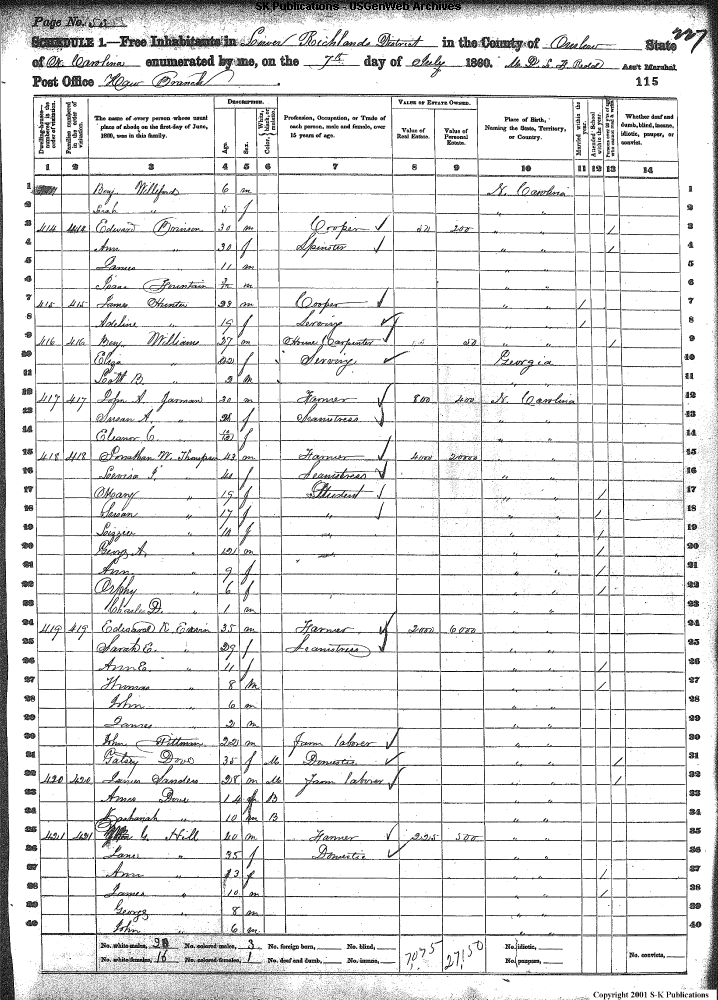 SK Publications - USGenWeb Archives
Page No.
227
SCHEDULE 1.—Free Inhabitants in Lower Richlands District in the County of Onslow State
of N. Carolina enumerated by me, on the 7th day of July 1860. Ass't Marshal
Post Office Haw Branch 115
Dwelling-houses—numbered in the order of visitation.
Families numbered in the order of visitation.
The name of every person whose usual place of abode on the first day of June, 1860, was in this family.
DESCRIPTION.
Age.
Sex.
Color, White, black, or mulatto.
Profession, Occupation, or Trade of each person, male and female, over 15 years of age.
VALUE OF ESTATE OWNED.
Value of Real Estate.
Value of Personal Estate.
Place of Birth, Naming the State, Territory, or Country.
Married within the year.
Attended School within the year.
Whether deaf and dumb, blind, insane, idiotic, pauper, or convict.
1 2 3 4 5 6 7 8 9 10 11 12 13 14
1 Benj. Williford 6 m N. Carolina 1
2 Sarah " 5 f " " 2
3 414 Edward 30 m Cooper 200 " " / 3
4 Ann " 30 f Spinster " " / 4
5 James " 11 m " " 5
6 Isaac Fountain m " " 6
7 415 415 James Hunter 23 m Cooper " " / 7
8 Adeline " 19 f Serving " " / 8
9 416 416 Benj. Williams 27 m House Carpenter 50 " " / 9
10 Eliza " 22 f Serving Georgia 10
11 Scott B. " 2 m 11
12 417 417 John A. Jarman 30 m Farmer 800 400 N. Carolina 12
13 Susan A. " f Seamstress " " 13
14 Eleanor C. " f " " 14
15 418 418 Jonathan W. Thompson 43 m Farmer 4000 20000 " " 15
16 " 41 f Seamstress " " 16
17 Mary " 19 f Student " " / 17
18 Susan " 17 f " " " / 18
19 Lizzie " f " " / 19
20 George A. " 12 m " " / 20
21 Ann " 9 f " " / 21
22 Orphy " 6 f " " / 22
23 Charles D. " 1 m " " 23
24 419 419 Edward K. 35 m Farmer 2000 6000 " " 24
25 Sarah E. " 29 f Seamstress " " 25
26 Ann E. " 11 f " " / 26
27 Thomas " 8 m " " / 27
28 John " 6 m " " 28
29 James " 2 m " " 29
30 John Pittman 22 m Farm laborer " " 30
31 Gatsey Dove 35 f M Domestic " " / 31
32 420 420 James Sanders 28 m M Farm laborer " " / 32
33 Amos Dove 14 B " " 33
34 " 10 m B " " 34
35 421 421 G. Hill 40 m Farmer 225 500 " " 35
36 " 35 f Domestic " " 36
37 Ann " 13 f " " / 37
38 James " 10 m " " / 38
39 George " 8 m " " 39
40 John " 6 m " " 40
No. white males, 20 No. colored males, 3 No. foreign born, No. blind, 7075 27,150 No. idiotic,
No. white females, 16 No. colored females, 1 No. deaf and dumb, No. insane, No. paupers, No. convicts,
Copyright 2001 S-K Publications